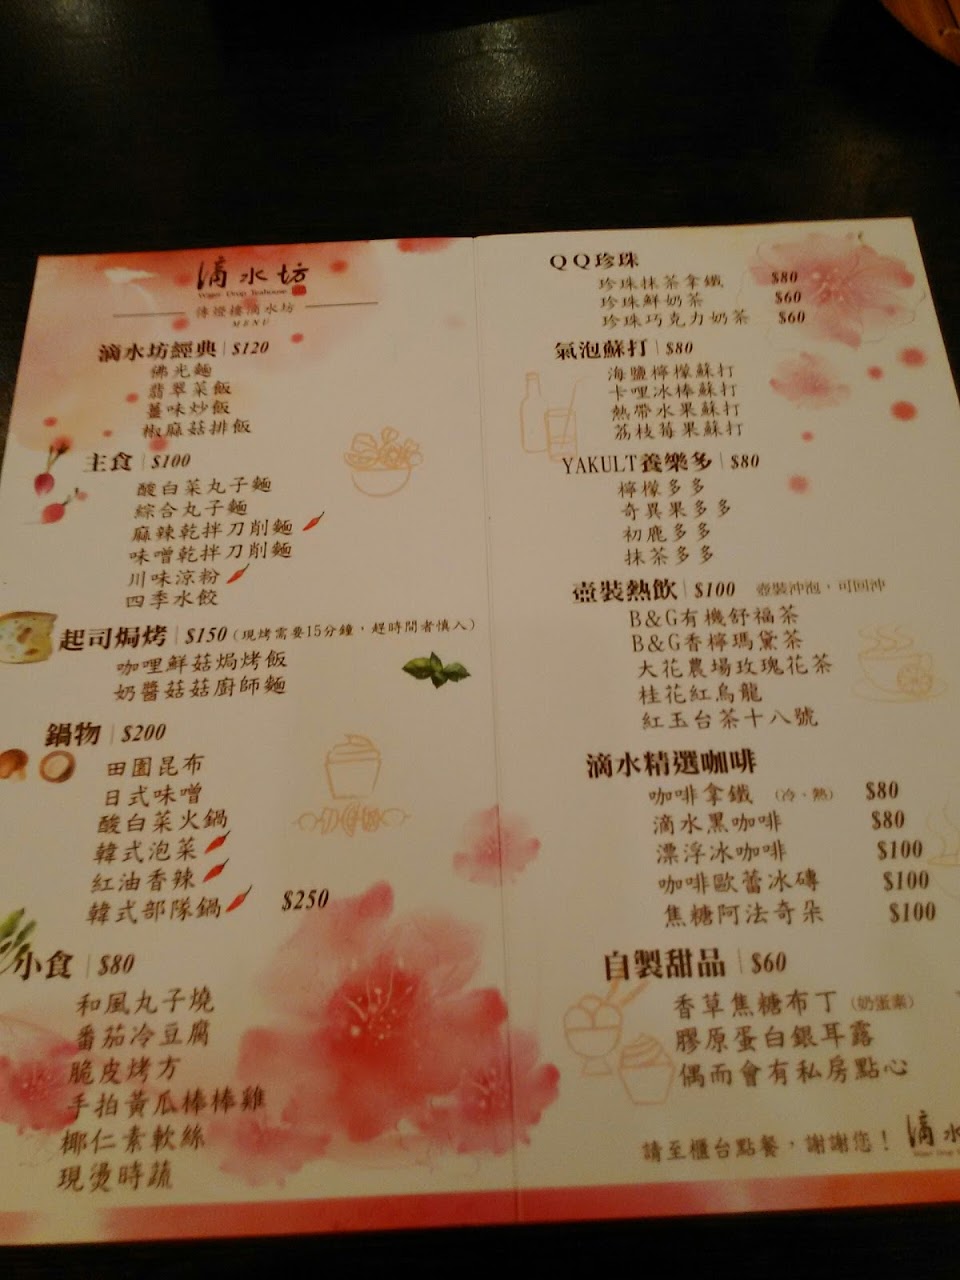 滴水坊
Water Drop Teahouse
傳燈樓滴水坊
MENU
滴水坊經典 | $120
佛光麵
翡翠菜飯
薑味炒飯
椒麻菇排飯
主食 | $100
酸白菜丸子麵
綜合丸子麵
麻辣乾拌刀削麵
味噌乾拌刀削麵
川味涼粉
四季水餃
起司焗烤 | $150 (現烤需要15分鐘,趕時間者慎入)
咖哩鮮菇焗烤飯
奶醬菇菇廚師麵
鍋物 | $200
田園昆布
日式味噌
酸白菜火鍋
韓式泡菜
紅油香辣
韓式部隊鍋 $250
小食 | $80
和風丸子燒
番茄冷豆腐
脆皮烤方
手拍黃瓜棒棒雞
椰仁素軟絲
現燙時蔬
QQ珍珠
珍珠抹茶拿鐵 $80
珍珠鮮奶茶 $60
珍珠巧克力奶茶 $60
氣泡蘇打 | $80
海鹽檸檬蘇打
卡哩冰棒蘇打
熱帶水果蘇打
荔枝莓果蘇打
YAKULT養樂多 | $80
檸檬多多
奇異果多多
初鹿多多
抹茶多多
壺裝熱飲 | $100 壺裝沖泡,可回沖
B&G有機舒福茶
B&G香檸瑪黛茶
大花農場玫瑰花茶
桂花紅烏龍
紅玉台茶十八號
滴水精選咖啡
咖啡拿鐵 (冷、熱) $80
滴水黑咖啡 $80
漂浮冰咖啡 $100
咖啡歐蕾冰磚 $100
焦糖阿法奇朵 $100
自製甜品 | $60
香草焦糖布丁 (奶蛋素)
膠原蛋白銀耳露
偶而會有私房點心
請至櫃台點餐,謝謝您!
滴水